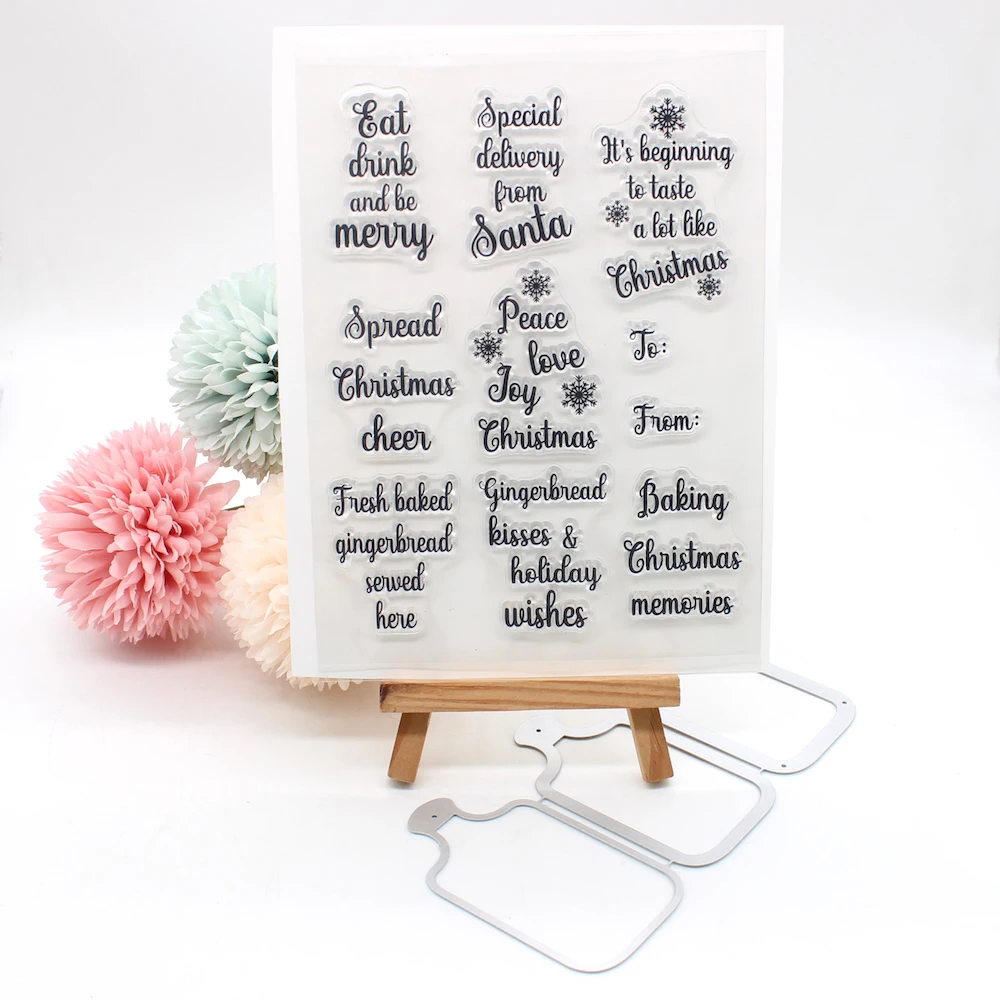 Eat
drink
and be
merry
Special
delivery
from
Santa
It's beginning
to taste
a lot like
Christmas
Spread
Christmas
cheer
Peace
love
Joy
Christmas
To:
From:
Fresh baked
gingerbread
served
here
Gingerbread
kisses &
holiday
wishes
Baking
Christmas
memories